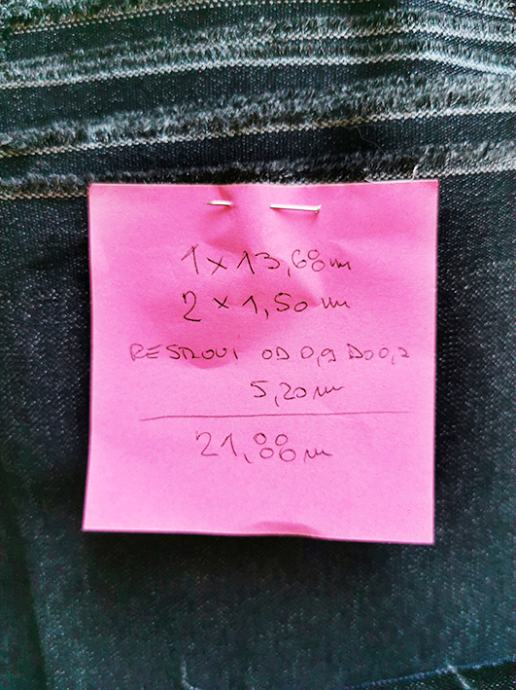 1 x 13,68m
2 x 1,50 m
RESTOVI OD 0,9 DO 0,2
5,20m
21,88m